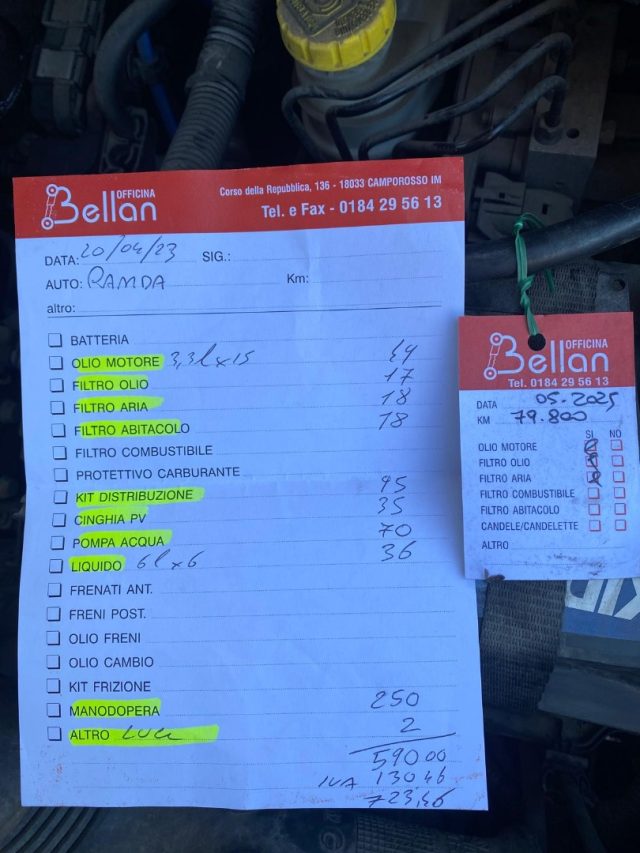 OFFICINA
Bellan
Corso della Repubblica, 136 - 18033 CAMPOROSSO IM
Tel. e Fax - 0184 29 56 13
DATA: 20/04/23 SIG.:
AUTO: PANDA Km:
altro:
BATTERIA
OLIO MOTORE 3,3l x 15 49
FILTRO OLIO 17
FILTRO ARIA 18
FILTRO ABITACOLO 18
FILTRO COMBUSTIBILE
PROTETTIVO CARBURANTE
KIT DISTRIBUZIONE 95
CINGHIA PV 35
POMPA ACQUA 70
LIQUIDO 6l x 6 36
FRENATI ANT.
FRENI POST.
OLIO FRENI
OLIO CAMBIO
KIT FRIZIONE
MANODOPERA 250
ALTRO LUCI 2
590 00
IVA 130 46
723,46
OFFICINA
Bellan
Tel. 0184 29 56 13
DATA 05.2025
KM 79.800
SI NO
OLIO MOTORE
FILTRO OLIO
FILTRO ARIA
FILTRO COMBUSTIBILE
FILTRO ABITACOLO
CANDELE/CANDELETTE
ALTRO